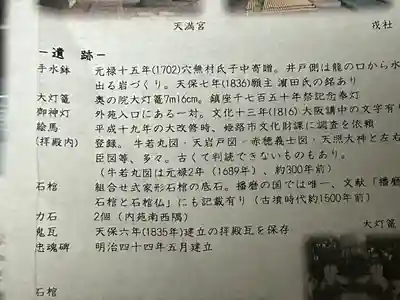 天満宮
戎社
－遺 跡－
手水鉢 元禄十五年(1702)穴無村氏子中寄贈。井戸側は龍の口から水
出る岩づくり。天保七年(1836)願主 濵田氏の銘あり
大灯篭 奥の院大灯篭7m16cm。鎮座千七百五十年祭記念奉灯
御神灯 外苑入口にある一対。文化十三年(1816)大阪講中の文字有り
絵馬 平成十九年の大改修時、姫路市文化財課に調査を依頼
(拝殿内) 登録。 牛若丸図・天岩戸図・赤穂義士図・天照大神と左右
臣図等、多々。古くて判読できないものもあり。
(牛若丸図は元禄2年（1689年）、約300年前)
石棺 組合せ式家形石棺の底石。播磨の国では唯一、文献「播磨
石棺と石棺仏」にも記載有り（古墳時代約1500年前）
力石 2個（内苑南西隅）
鬼瓦 天保六年(1835年)建立の拝殿瓦を保存
忠魂碑 明治四十四年五月建立
大灯篭
石棺